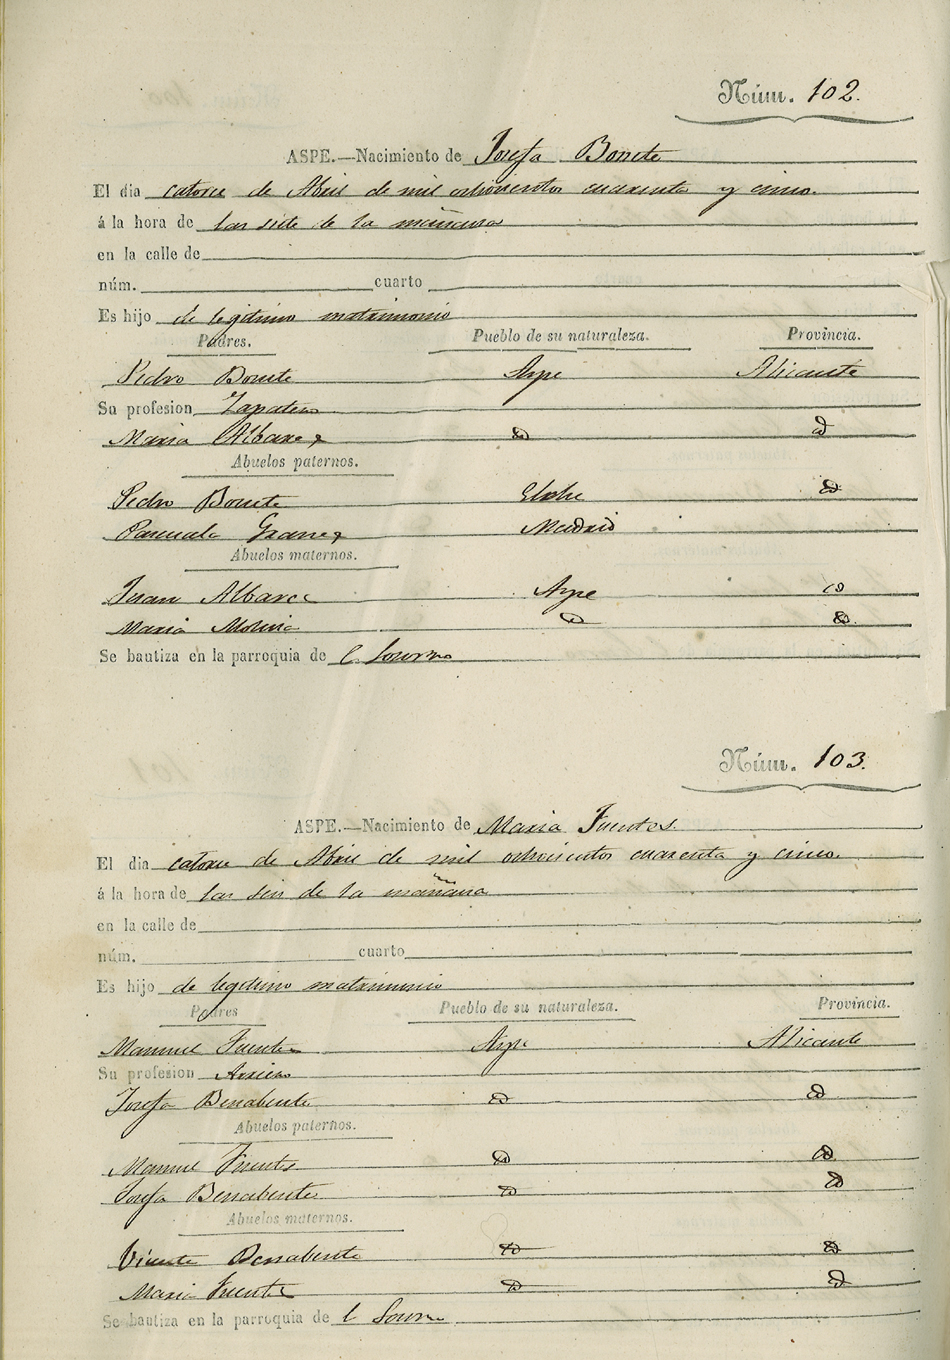 Núm. 102.
ASPE.—Nacimiento de Josefa Bonete
El dia catorce de Abril de mil ochocientos cuarenta y cinco.
á la hora de las siete de la mañana
en la calle de
núm. cuarto
Es hijo de legitimo matrimonio
Padres. Pueblo de su naturaleza. Provincia.
Pedro Bonete Aspe Alicante
Su profesion Zapatero
Maria Albarez id
Abuelos paternos.
Pedro Bonete Elche id
Pascuala Madrid
Abuelos maternos.
Juan Albarez Aspe id
Maria Molina id id
Se bautiza en la parroquia de l Socorro
Núm. 103.
ASPE.—Nacimiento de Maria Fuentes.
El dia catorce de Abril de mil ochocientos cuarenta y cinco.
á la hora de las seis de la mañana
en la calle de
núm. cuarto
Es hijo de legitimo matrimonio
Padres Pueblo de su naturaleza. Provincia.
Manuel Fuentes Aspe Alicante
Su profesion Arriero
Josefa Benabente id id
Abuelos paternos.
Manuel Fuentes id id
Josefa Benabente id id
Abuelos maternos.
Vicente Benabente id id
Maria Fuentes id id
Se bautiza en la parroquia de l Socorro